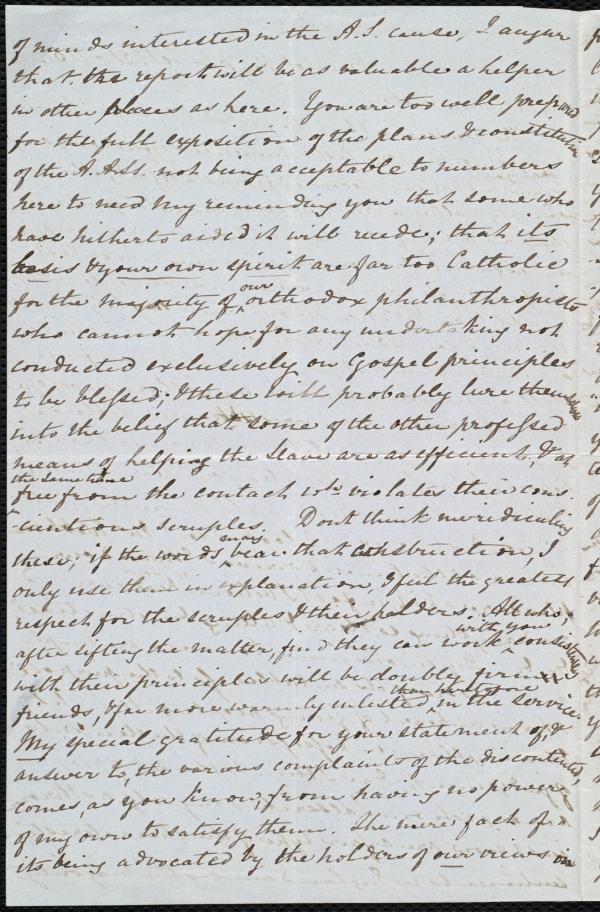 of minds interested in the A.S. cause, I augur
that the report will be as valuable a helper
in other places as here. You are too well prepared
for the full exposition of the plans & constitution
of the A.A.S.S. not being acceptable to numbers
here to need my reminding you that some who
have hitherto aided it will recede; that its
basis & your own spirit are far too Catholic
for the majority of our orthodox philanthropists
who cannot hope for any undertaking not
conducted exclusively on Gospel principles
to be blessed; & these will probably lure themselves
into the belief that some of the other professed
means of helping the Slave are as efficient, & at
the same time
free from the contact wh. violates their cons
cientious scruples. Dont think me ridiculing
these; if the words may bear that construction, I
only use them in explanation, & feel the greatest
respect for the scruples & their holders. All who,
after sifting the matter, find they can work with you consistently
with their principles will be doubly firm
friends, & far more warmly enlisted than heretofore in the service.
My special gratitude for your statement of, &
answer to, the various complaints of the discontented,
comes, as you know, from having no power
of my own to satisfy them. The mere fact of
its being advocated by the holders of our views in